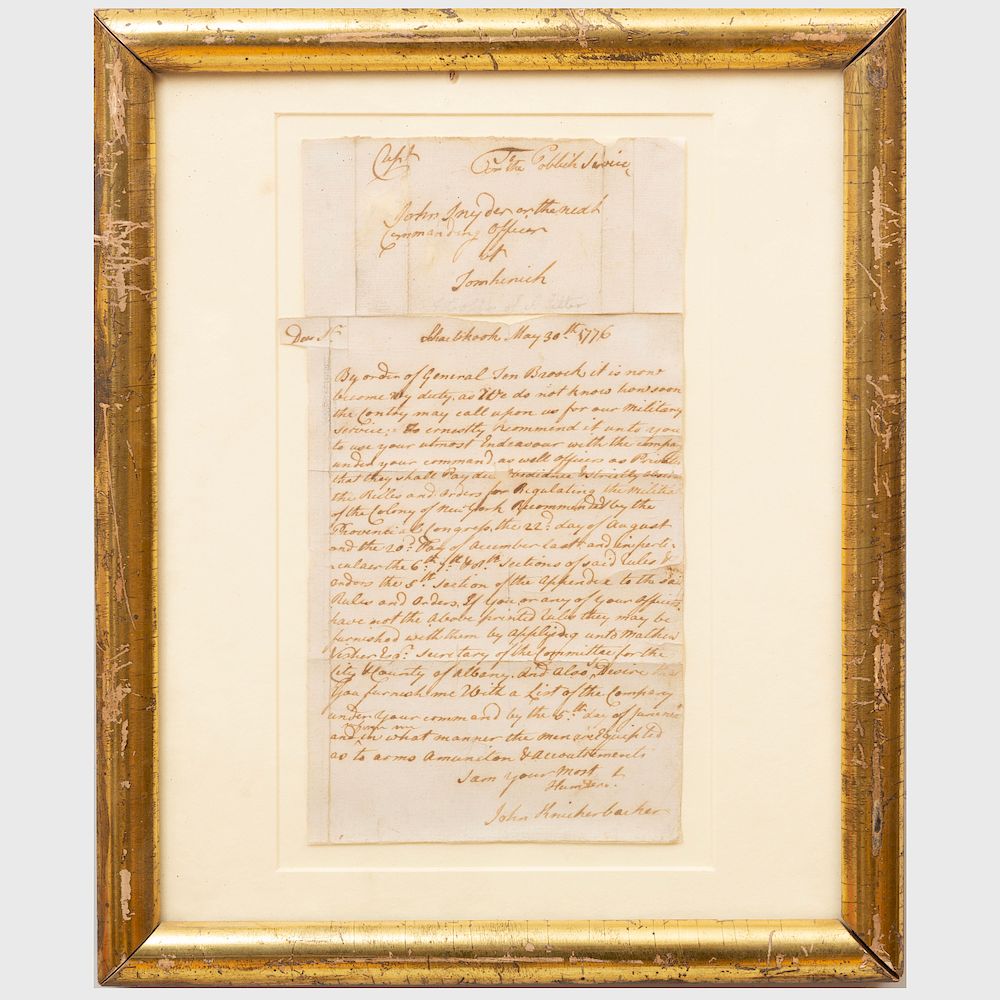 Capt For the Publick Service
John Snyder or the next
Commanding Officer
at
Tomhenich
Dear Sr Schactikook May 30.th 1776
By order of General Ten Broock it is now
become my duty, as We do not know how soon
the Contry may call upon us for our Military
Service; To ernustly recommend it unto you
to use your utmost Endeavour with the Compa
under your command as well officers as Privat
that they shall Pay due
the Rules and Orders for Regulating the Militia
of the Colony of New York Recommended by the
Provential Congress, the 22.d day of August
and the 20.th Day of December last and in perti-
culaer the 6th 7th & 8th Sections of said rules &
orders the 5th Section of the appendex to the sd
Rules and Orders, If you or any of your Officers
have not the above printed rules they may be
furnished with them by applying unto Mathew
Visher Esqr. Secretary of the Committee for the
City & County of Albany. And also, Desire that
You furnish me With a List of the Company
under your command by the 6th day of June next
and in what manner the men are Equipted
as to arms amunition & accoutrements
I am Your Most
Hum
John Knickerbacker